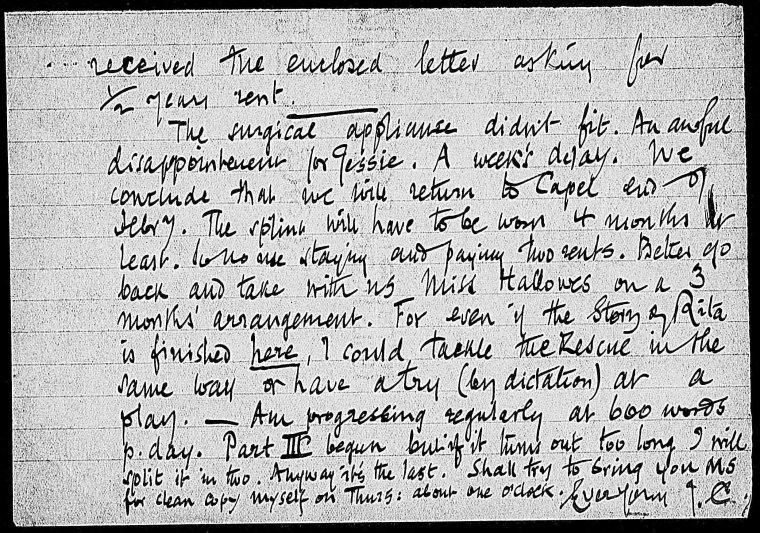 ... received the enclosed letter asking for
1/2 years rent.
The surgical appliance didn't fit. An awful
disappointment for Jessie. A week's delay. We
conclude that we will return to Capel end of
Febry. The splint will have to be worn 4 months at
least. So no use staying and paying two rents. Better go
back and take with us Miss Hallowes on a 3
months' arrangement. For even if the Story of Rita
is finished here, I could tackle the Rescue in the
same way or have a try (by dictation) at a
play. — Am progressing regularly at 600 words
p. day. Part III begun but if it turns out too long I will
split it in two. Anyway it's the last. Shall try to bring you MS
for clean copy myself on Thurs: about one o'clock. Ever yours J. C.